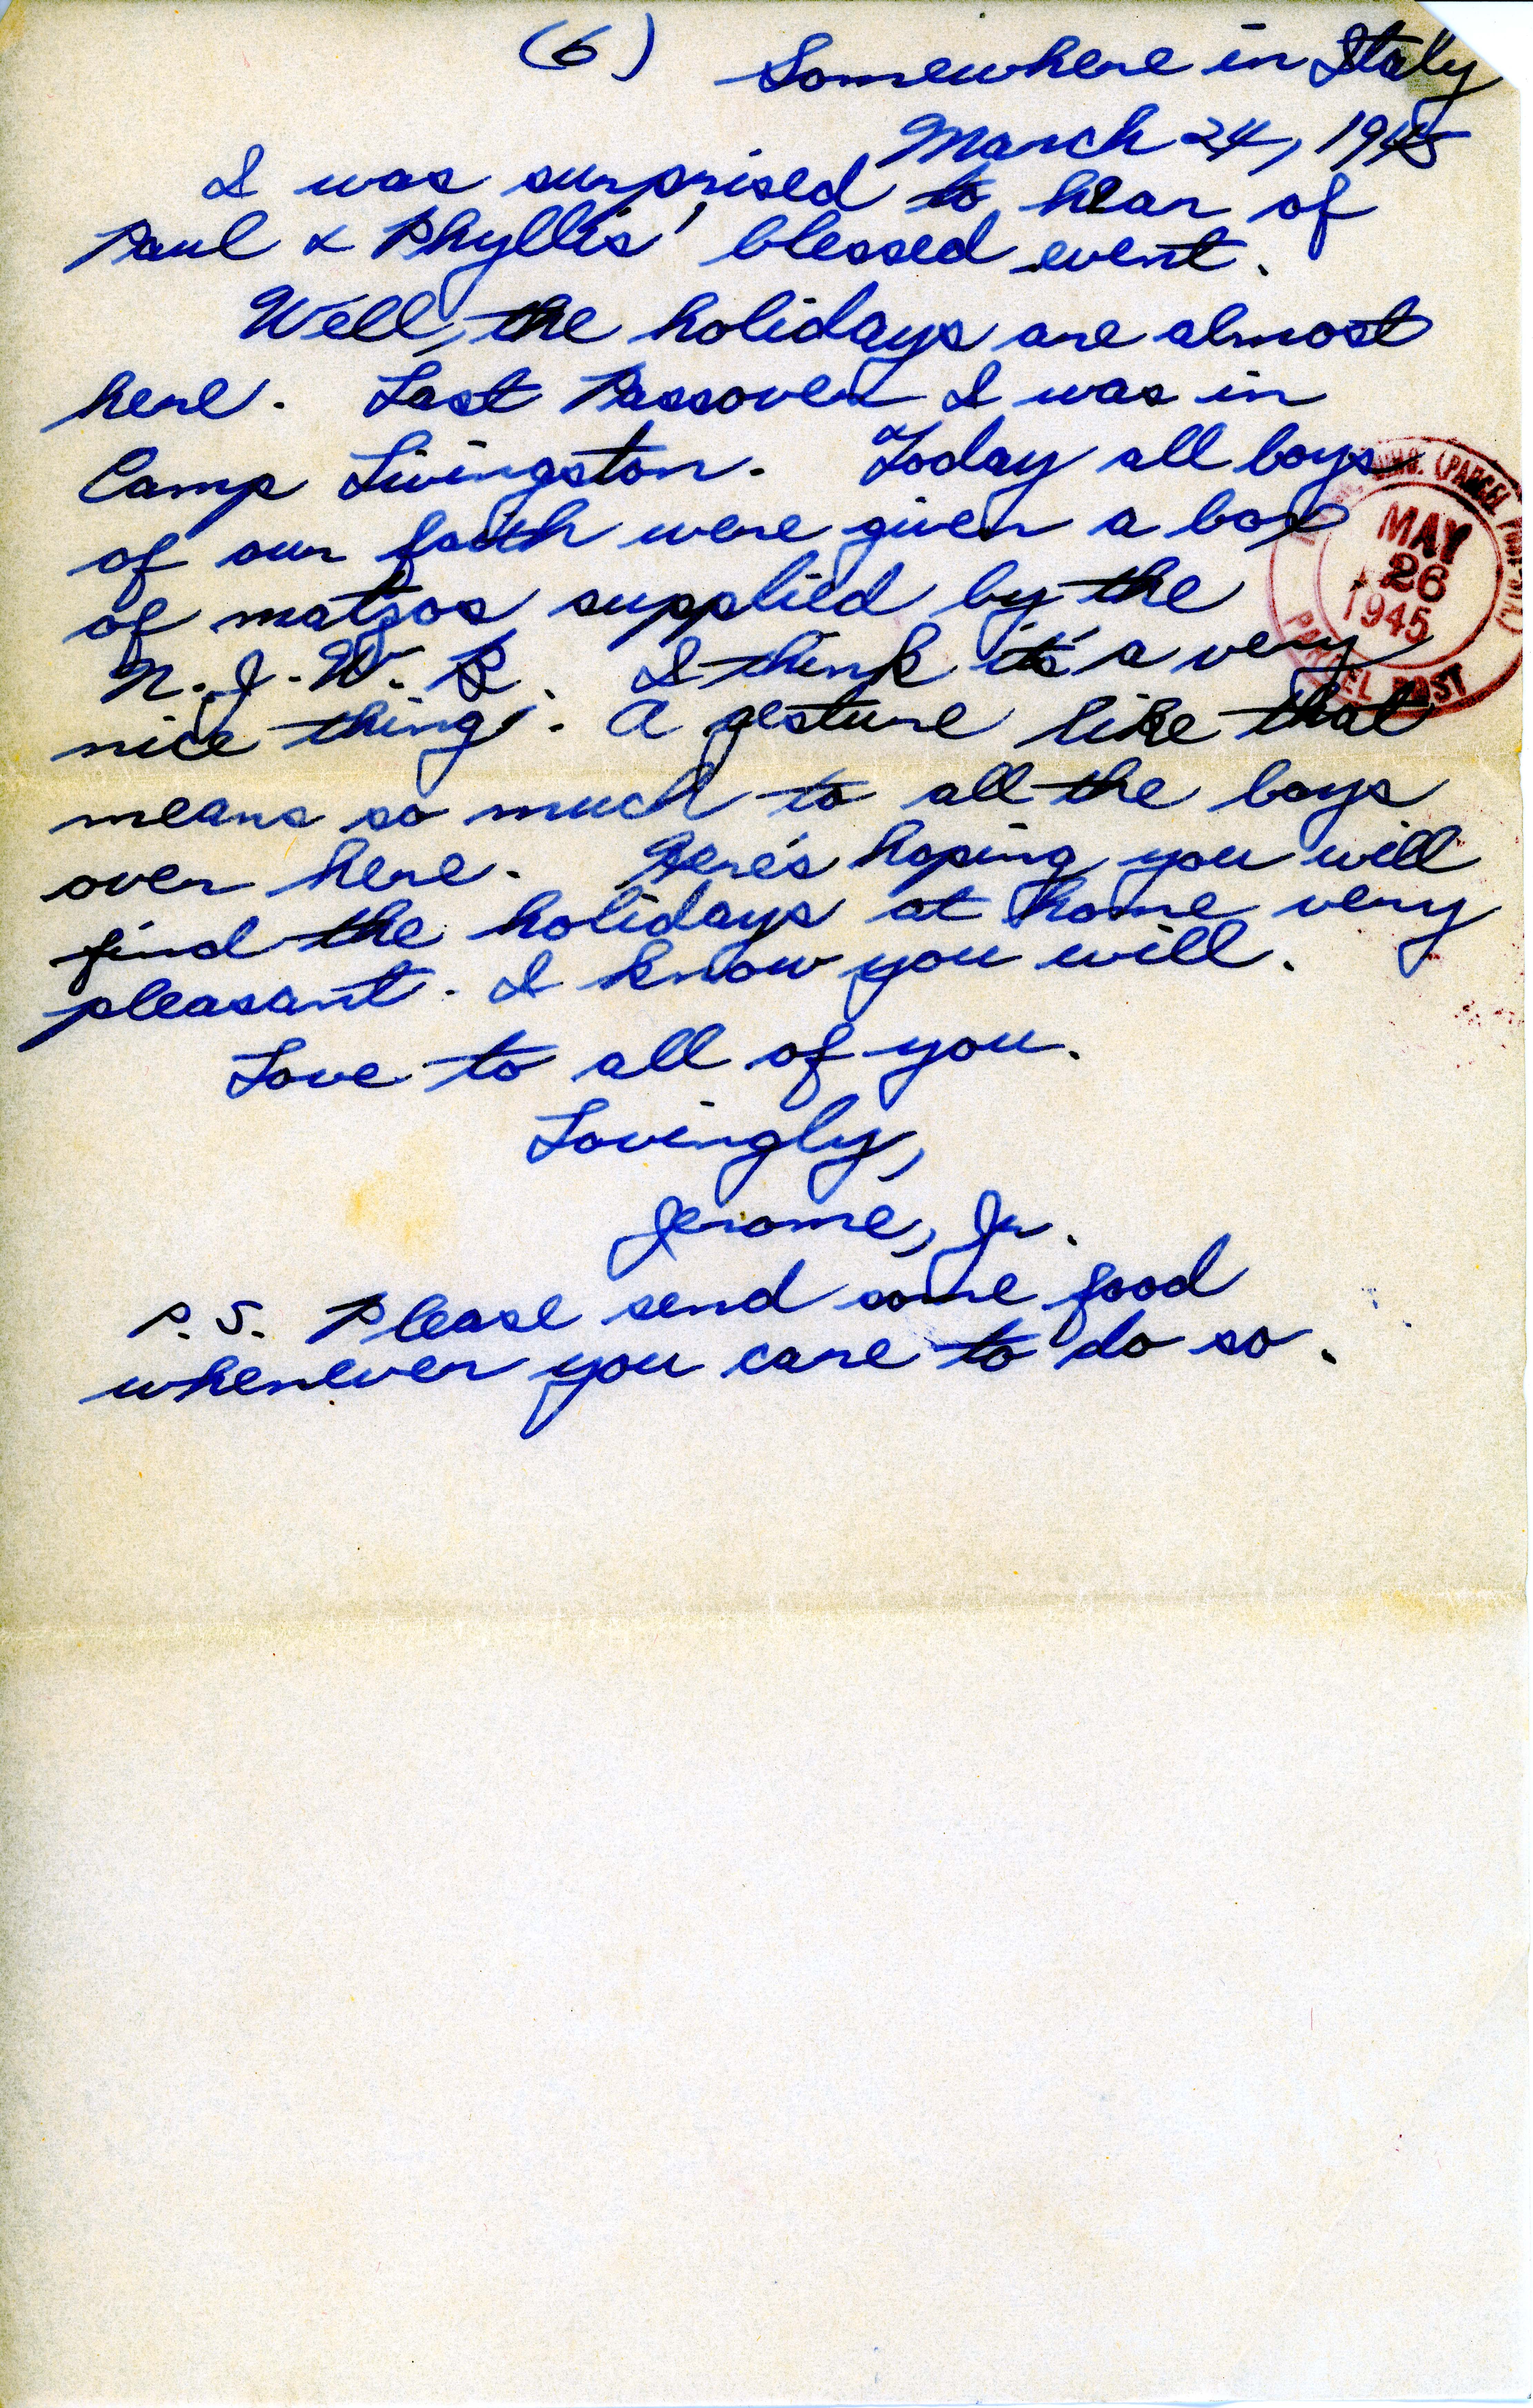 (6) Somewhere in Italy
March 24, 1945
I was surprised to hear of
Paul & Phyllis' blessed event.
Well, the holidays are almost
here. Last Passover I was in
Camp Livingston. Today all boys
of our faith were given a box
of matzos supplied by the
N.J.W.B. I think it's a very
nice thing. A gesture like that
means so much to all the boys
over here. Here's hoping you will
find the holidays at home very
pleasant. I know you will.
Love to all of you.
Lovingly,
Jerome, Jr.
P.S. Please send some food
whenever you care to do so.
(PARCEL POST
MAY
26
1945
PARCEL POST